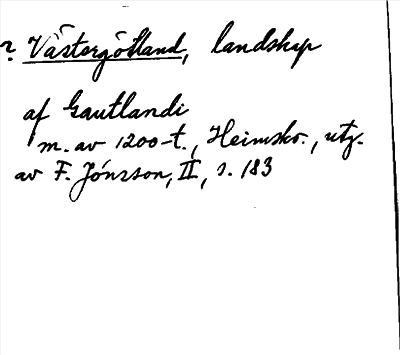 ? Västergötland, landskap
af Gautlandi
m. av 1200-t., Heimskr., utg.
av F. Jónsson, II, s. 183